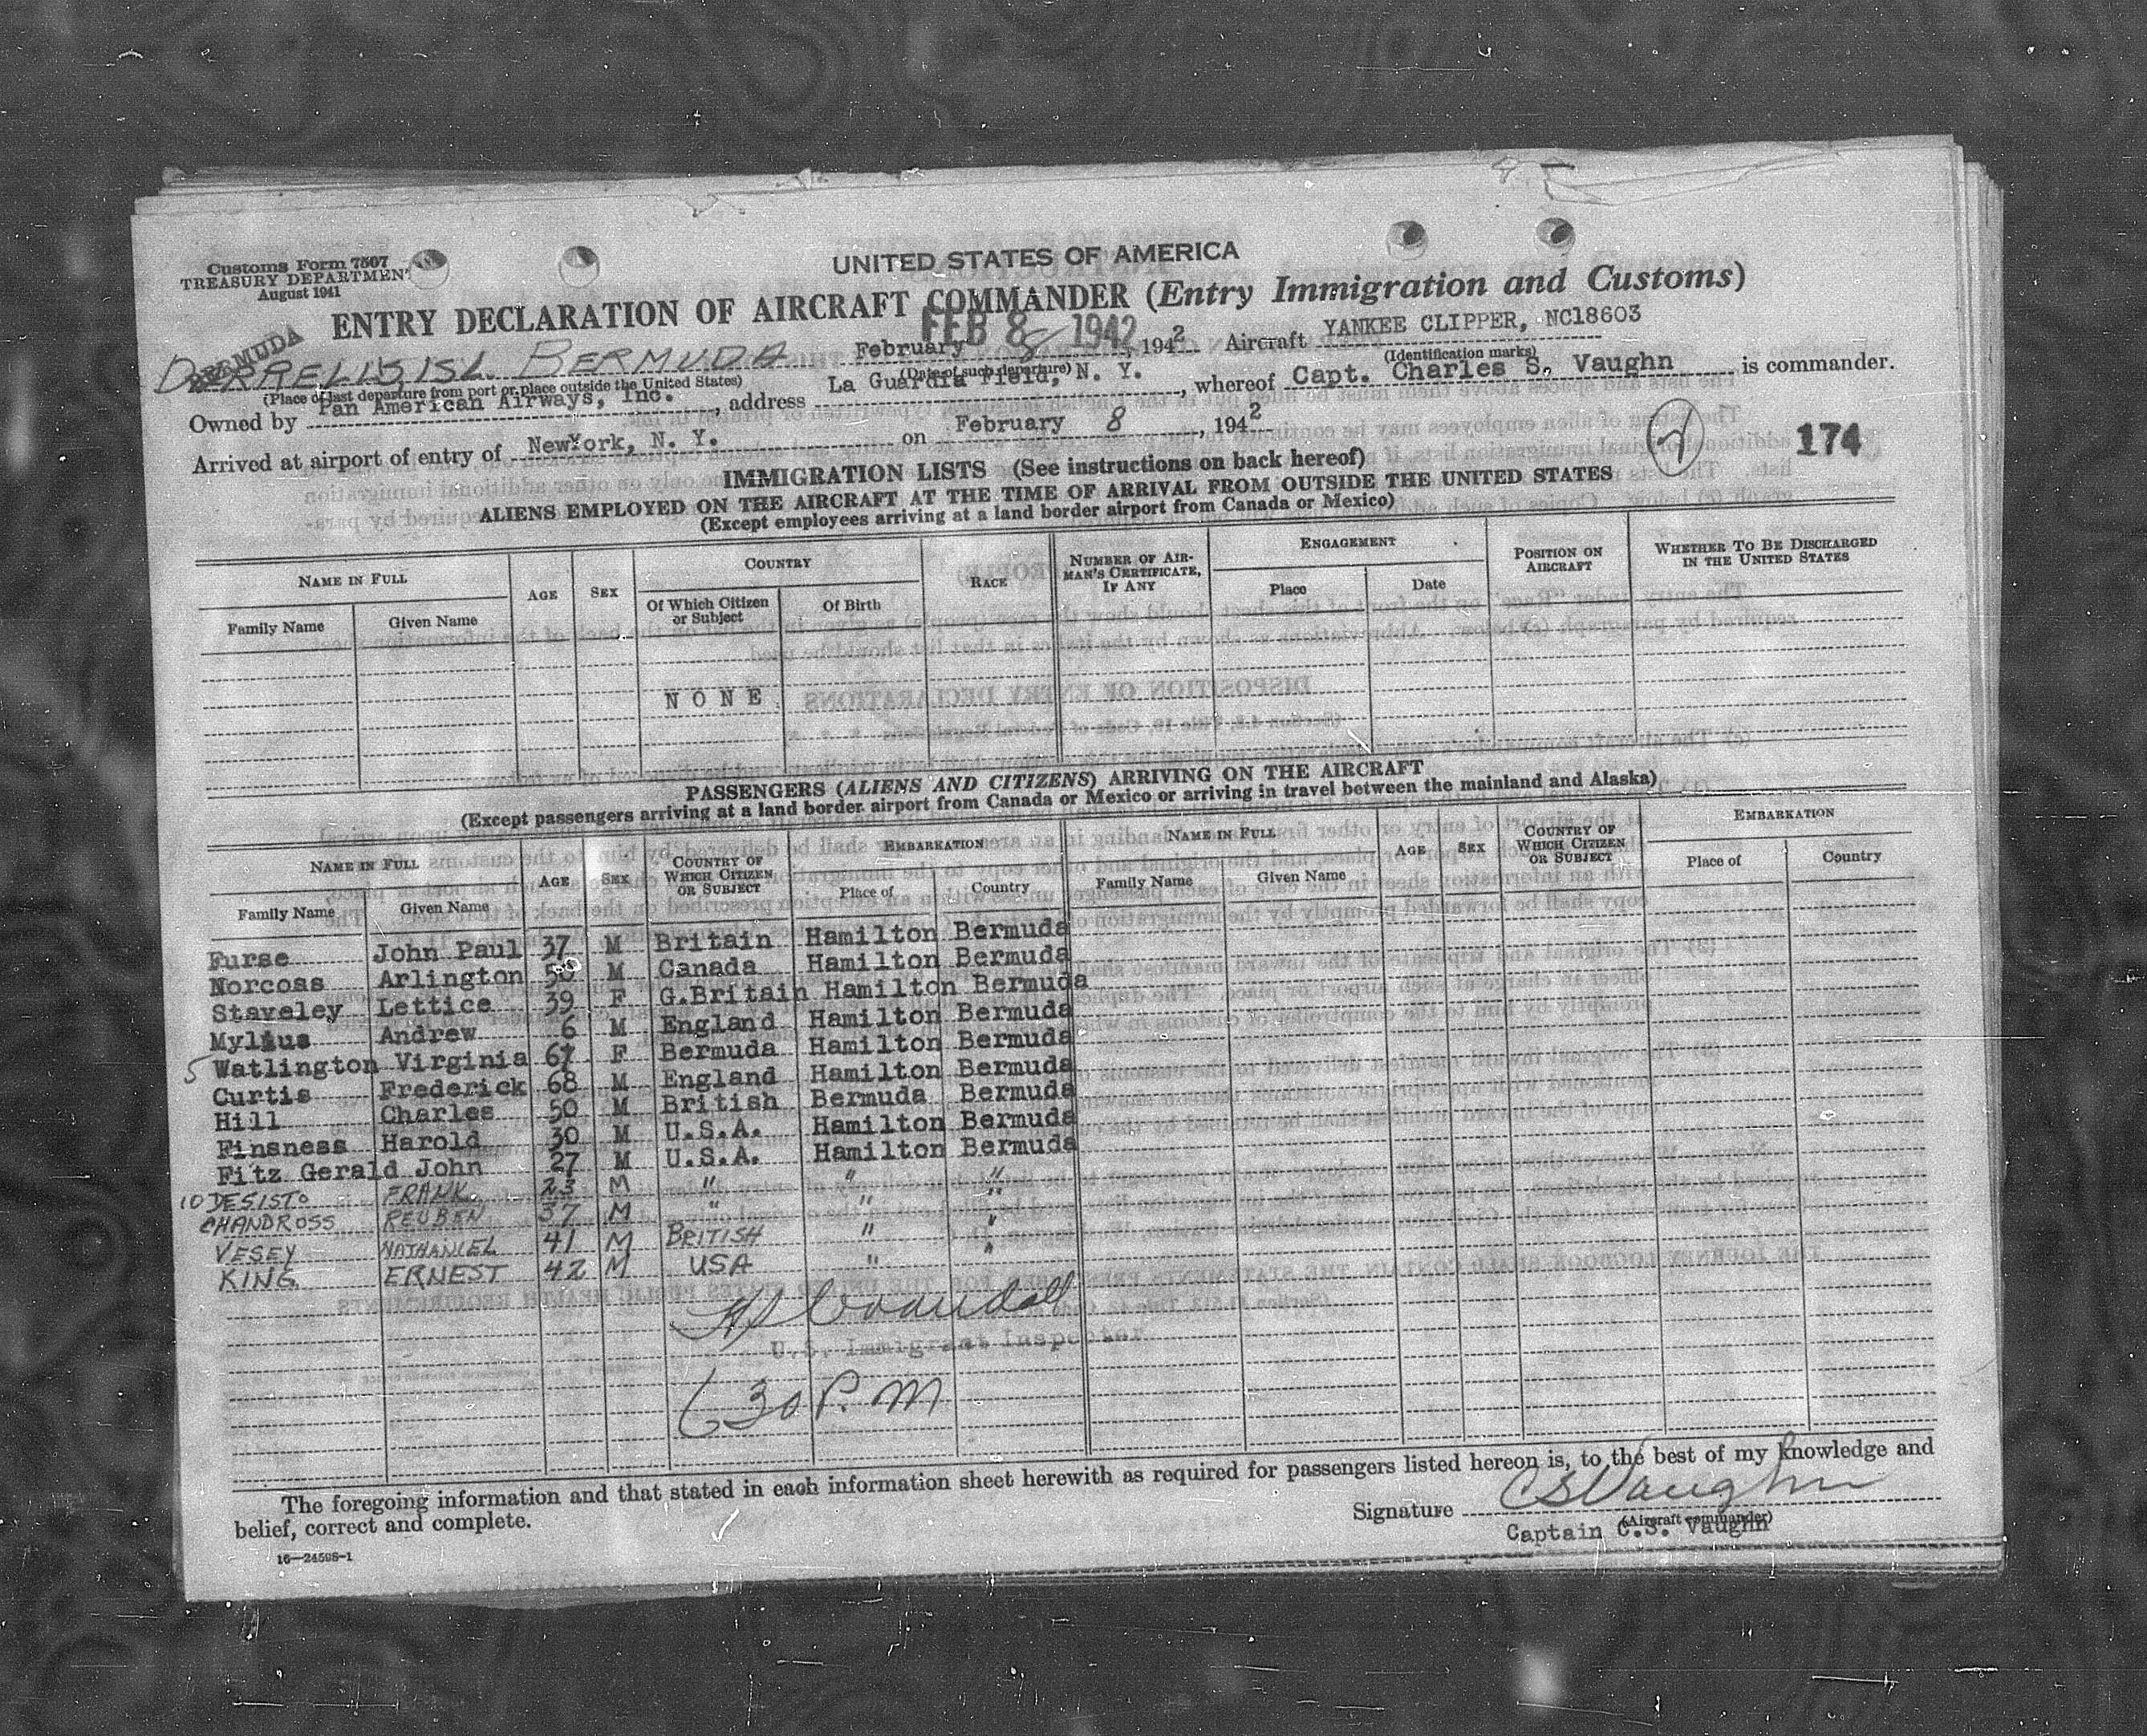 Customs Form 7507
TREASURY DEPARTMENT
August 1941
UNITED STATES OF AMERICA
ENTRY DECLARATION OF AIRCRAFT COMMANDER (Entry Immigration and Customs)
BERMUDA
FEB 8 1942
DARRELLS ISL. BERMUDA February 8, 1942 Aircraft YANKEE CLIPPER, NC18603
(Place of last departure from port or place outside the United States) (Date of such departure) (Identification marks)
Owned by Pan American Airways, Inc., address La Guardia Field, N. Y., whereof Capt. Charles S. Vaughn is commander.
Arrived at airport of entry of New York, N. Y. on February 8, 1942
174
IMMIGRATION LISTS (See instructions on back hereof)
ALIENS EMPLOYED ON THE AIRCRAFT AT THE TIME OF ARRIVAL FROM OUTSIDE THE UNITED STATES
(Except employees arriving at a land border airport from Canada or Mexico)
NAME IN FULL AGE SEX COUNTRY RACE NUMBER OF AIRMAN'S CERTIFICATE, IF ANY ENGAGEMENT POSITION ON AIRCRAFT WHETHER TO BE DISCHARGED IN THE UNITED STATES
Family Name Given Name Of Which Citizen or Subject Of Birth Place Date
NONE
PASSENGERS (ALIENS AND CITIZENS) ARRIVING ON THE AIRCRAFT
(Except passengers arriving at a land border airport from Canada or Mexico or arriving in travel between the mainland and Alaska)
NAME IN FULL AGE SEX COUNTRY OF WHICH CITIZEN OR SUBJECT EMBARKATION NAME IN FULL AGE SEX COUNTRY OF WHICH CITIZEN OR SUBJECT EMBARKATION
Family Name Given Name Place of Country Family Name Given Name Place of Country
Furse John Paul 37 M Britain Hamilton Bermuda
Norcoss Arlington 50 M Canada Hamilton Bermuda
Staveley Lettice 39 F G.Britain Hamilton Bermuda
Mylius Andrew 6 M England Hamilton Bermuda
5 Watlington Virginia 67 F Bermuda Hamilton Bermuda
Curtis Frederick 68 M England Hamilton Bermuda
Hill Charles 50 M British Bermuda Bermuda
Finsness Harold 30 M U.S.A. Hamilton Bermuda
Fitz Gerald John 27 M U.S.A. Hamilton Bermuda
10 DESISTO FRANK 23 M " " "
CHANDROSS REUBEN 37 M " " "
VESEY NATHANIEL 41 M BRITISH " "
KING ERNEST 42 M USA " "
Crandall
U.S. Immigrant Inspector
6 30 P.M
The foregoing information and that stated in each information sheet herewith as required for passengers listed hereon is, to the best of my knowledge and
belief, correct and complete.
Signature CSVaughn
(Aircraft commander)
Captain C.S. Vaughn
16—24598-1